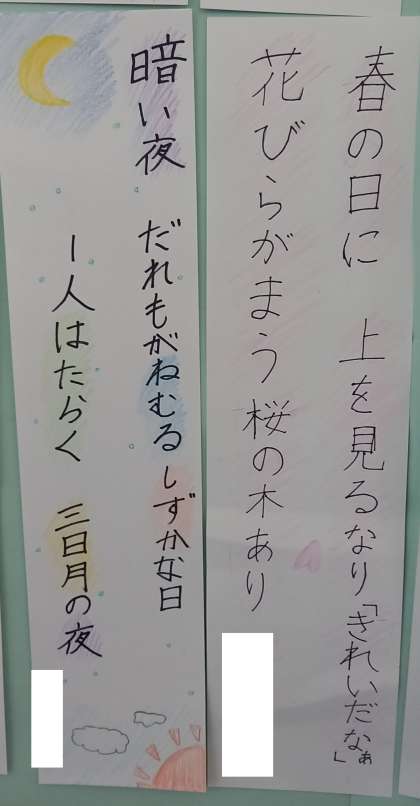 春の日に　上を見るなり「きれいだなぁ」
花びらがまう桜の木あり
暗い夜　だれもがねむるしずかな日
一人はたらく　三日月の夜